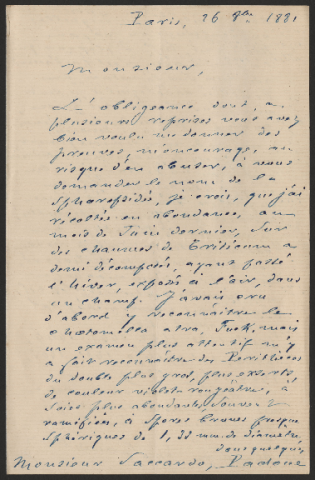 Paris, 26 9bre 1881
Monsieur,
L'obligeance dont, à
plusieurs reprises vous avez
bien voulu me donner des
preuves, m'encourage, au
risque d'en abuser, à vous
demander le nom de la
Sphaeropsidée, je crois, que j'ai
récoltée en abondance, au
mois de Juin dernier, sur
des chaumes de Triticum à
demi décomposés, ayant passé
l'hiver, exposés à l'air, dans
un champ. J'avais cru
d'abord y reconnaître le
Chaetomella atra, Fuck, mais
un examen plus attentif m'y
a fait reconnaître des Périthèces
du double plus gros, plus
de couleur violet-rougeâtre, à
soies plus abondantes, souvent
ramifiées, à spores brunes presque
sphériques de 1, mm de diamètre,
dans quelques
Monsieur Saccardo, Padoue